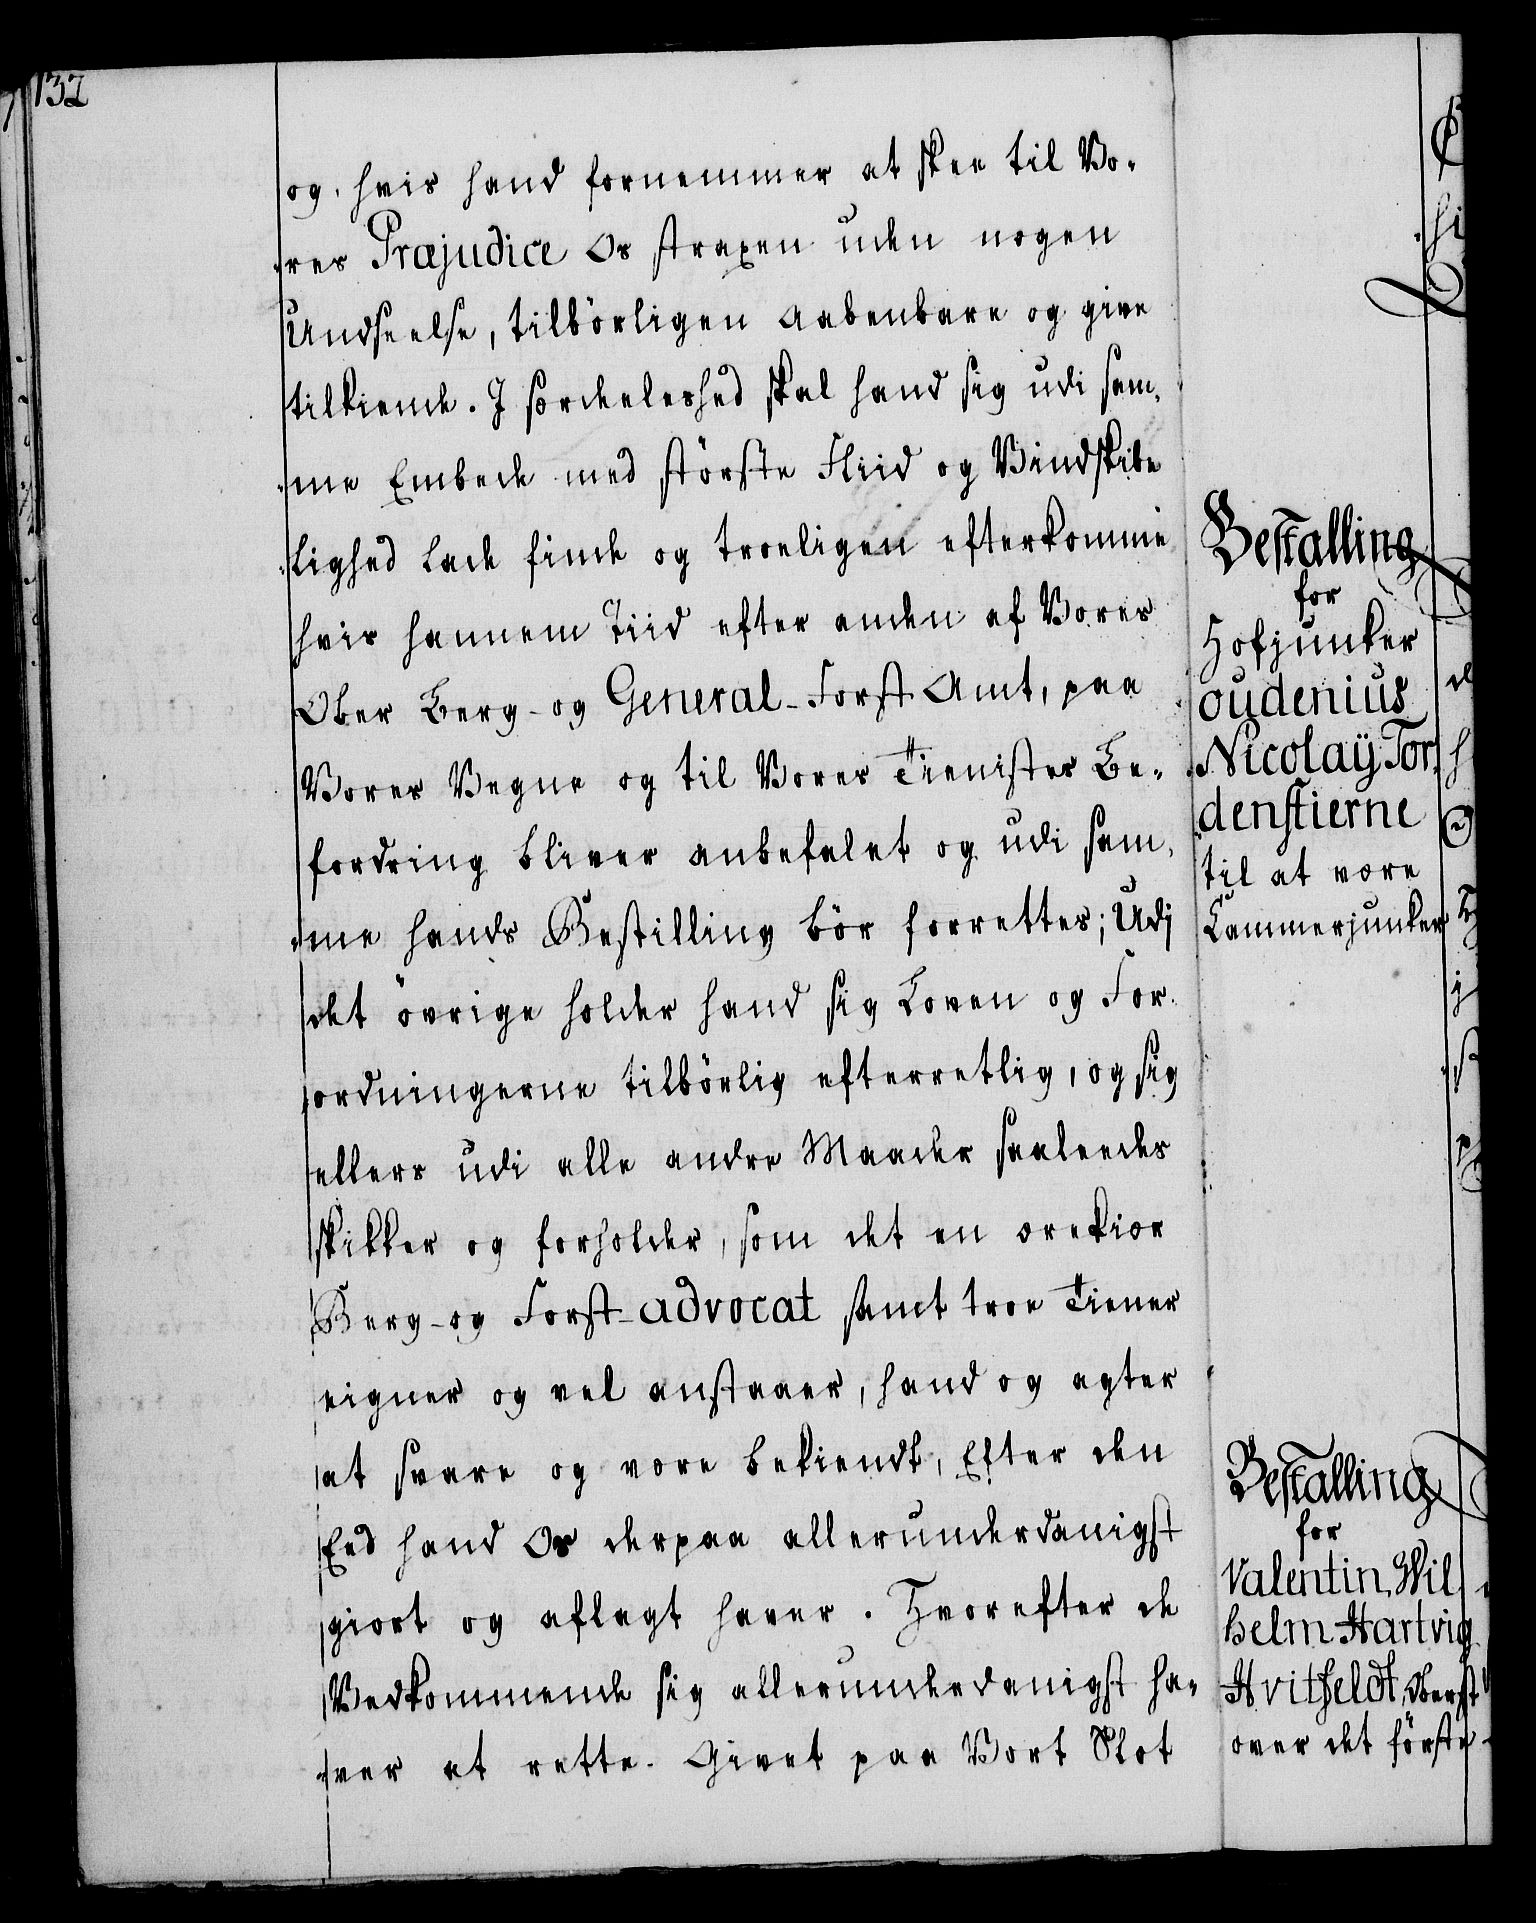 132
og, hvis hand fornemmer at skee til Vo-
res Præjudice Os straxen uden nogen
Undseelse, tilbörligen aabenbare og give
tilkiende. J særdeleshed skal hand sig udi sam-
me Embede med störste Fliid og Vindskibe
lighed lade finde og troeligen efterkomme
hvis hannem Tiid efter anden af Vores
Ober Berg- og General-Forst-Amt, paa
Vores Vegne og til Vores Tienistes Be-
fordring bliver anbefalet og udi sam-
me hands Bestilling bör forrettes; Udj
det övrige holder hand sig Loven og For-
ordningerne tilbörlig efterretlig, og sig
ellers udi alle andre Maader saaledes
skikker og forholder, som det en ærekiær
Berg- og Forst-advocat samt troe Tiener
eigner og vel anstaaer, hand og agter
at svare og være bekiendt, Efter den
Eed hand Os derpaa allerunderdanigst
giort og aflagt haver. Hvorefter de
Vedkommende sig allerunderdanigst ha-
ver at rette. Givet paa Vort Slot
Bestalling
for
Hofjunker
oudenius
Nicolaÿ Tor
denstierne
til at være
Cammerjunker
Bestalling
for
Valentin Wil
helm Hartvig
Hvitfeldt, Oberst
over det förste